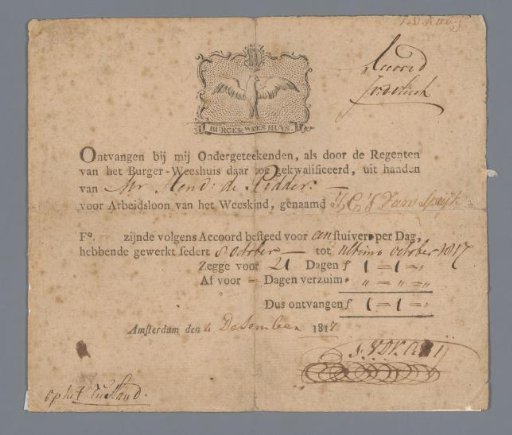 Accord
BURGER WEES HUYS.
Ontvangen bij mij Ondergeteekenden, als door de Regenten
van het Burger-Weeshuis daar toe gekwalificeerd, uit handen
van Mr Hend: de Ridder:
voor Arbeidsloon van het Weeskind, genaamd J. C. J. Van Speijk
Fo. zijnde volgens Accoord besteed voor een stuiver per Dag,
hebbende gewerkt sedert 8 October — tot ultimo october 1817
Zegge voor 21 Dagen f 1 = 1 = „
Af voor — Dagen verzuim „ „ = „ = „
Dus ontvangen f 1 = 1 = „
Amsterdam den 4 December 1817
op het Eiland.